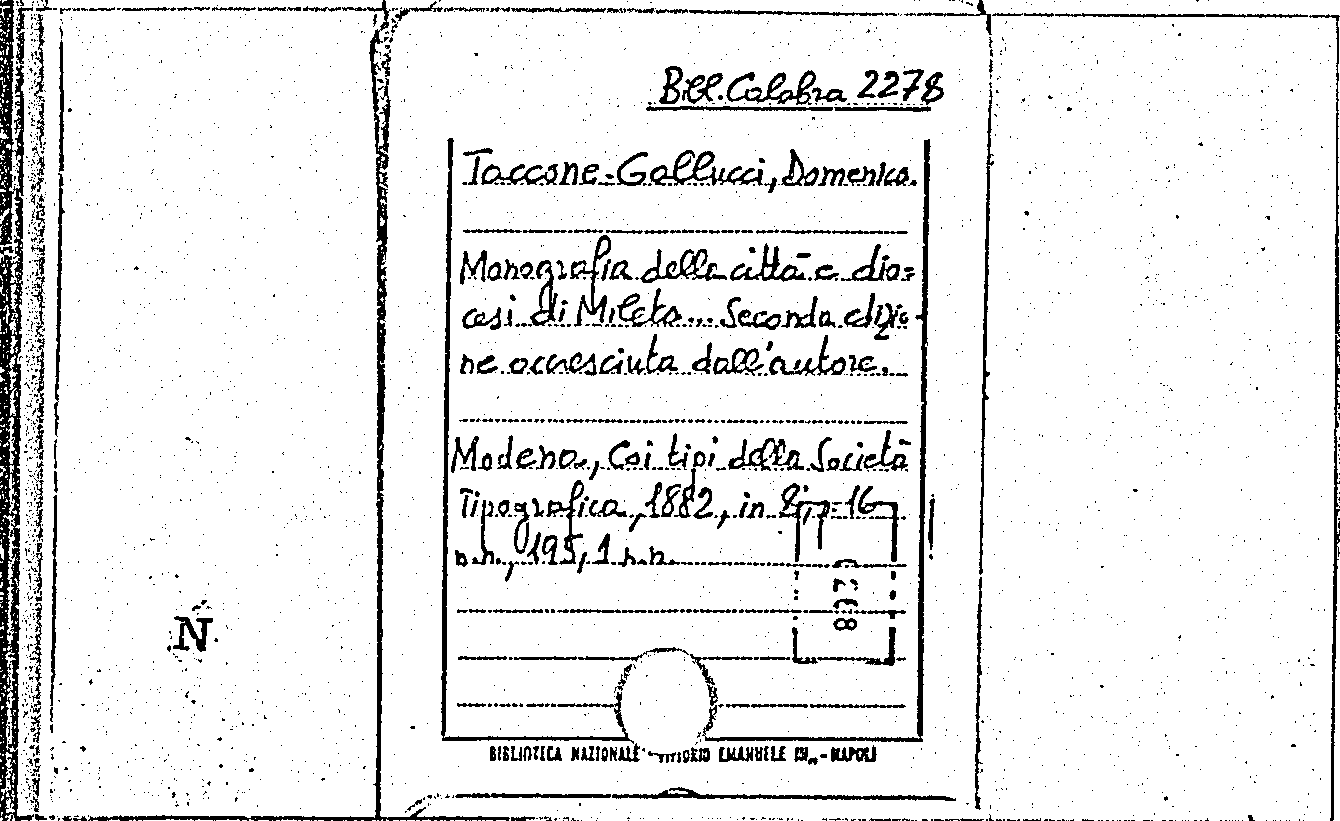 Bibl. Calabra 2278
Taccone-Gallucci, Domenico.
Monografia della città e dio=
cesi di Mileto... Seconda edizio-
ne accresciuta dall'autore.
Modena, Coi tipi della Società
Tipografica, 1882, in 8°, p. 16
n.n., 195, 1 n.n.
N
BIBLIOTECA NAZIONALE VITTORIO EMANUELE III - NAPOLI